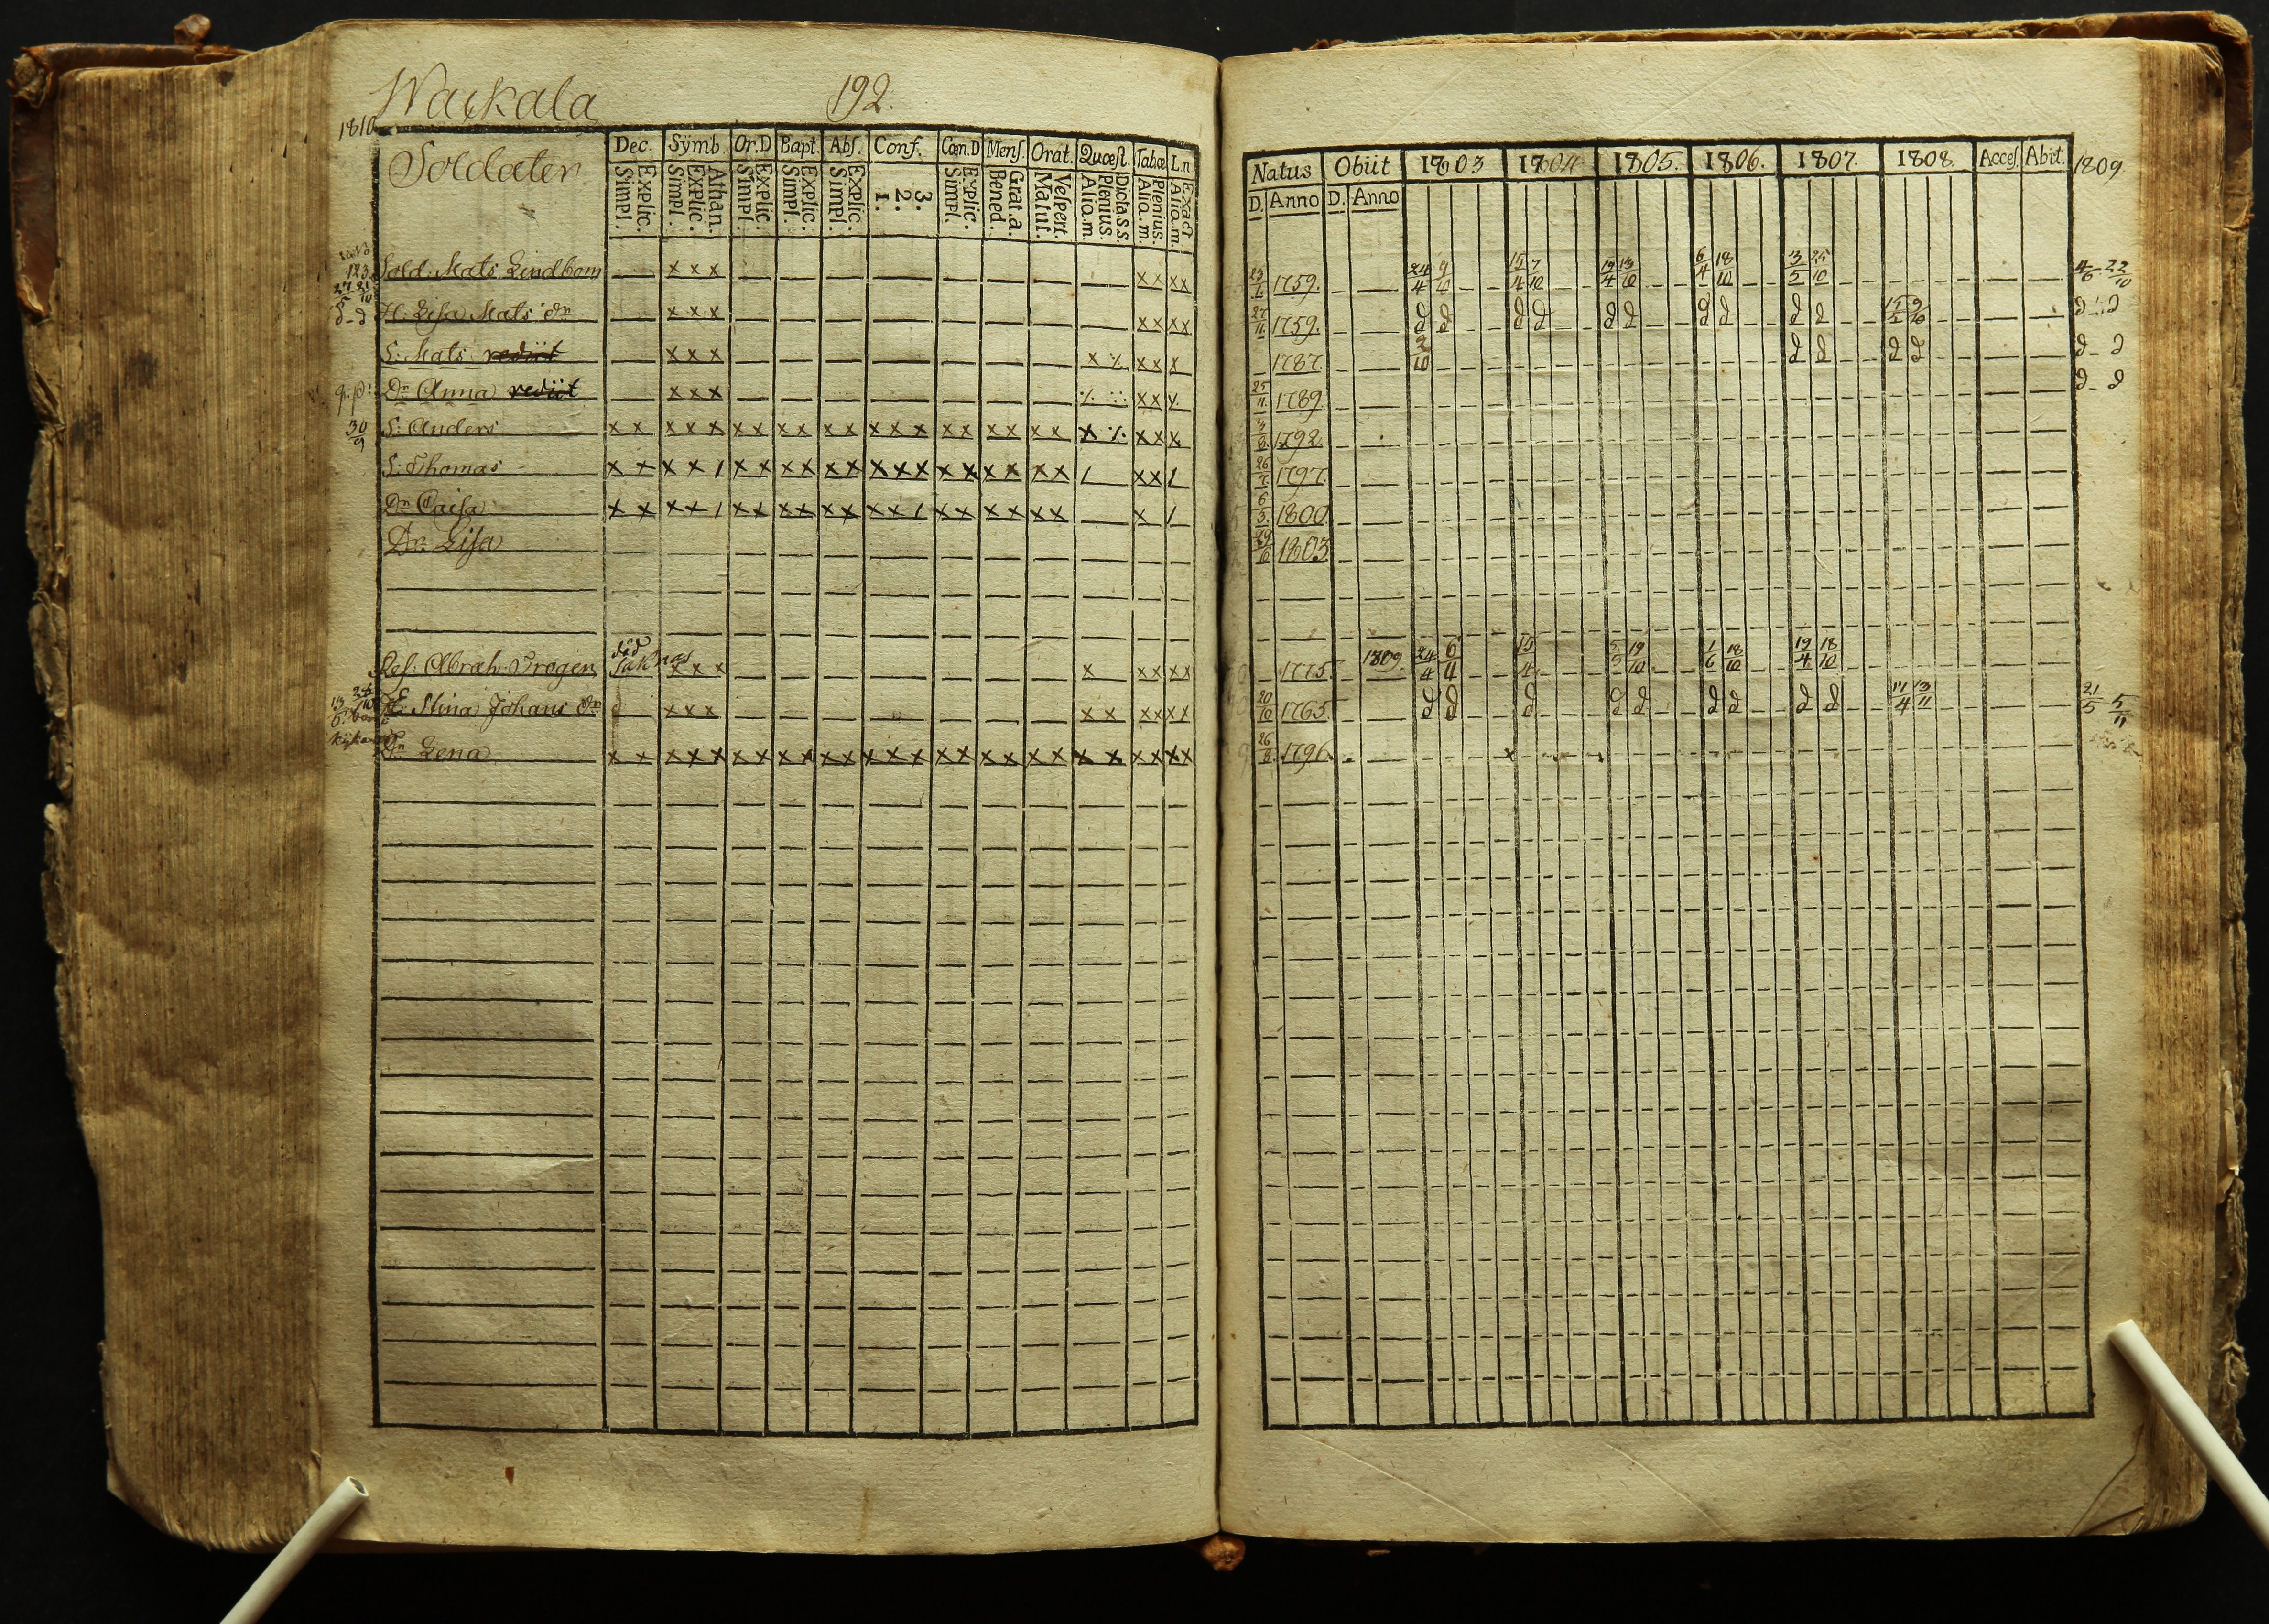 Wackala 192.
1810
Soldater
Dec. Sÿmb. Or.D Bapt. Abſ. Conf. Cœn.D Menſ. Orat. Quœſt. Tabœ L.n
Explic. Simpl. Athan. Explic. Simpl. Explic. Simpl. Explic. Simpl. Explic. Simpl. 3. 2. 1. Explic. Simpl. Grat.a. Bened. Veſpert. Matut. Dicta s.s. Plenius. Alio.m. Plenius. Alio.m. Exact Alio.m.
Natus Obiit 1803 1804 1805. 1806. 1807. 1808. Acceſ. Abit. 1809
D. Anno D. Anno
123. Sold. Mats Lindbom x x x x x x x 1759. 24/4 9/10 15/4 7/10 19/4 13/10 6/4 18/10 13/5 25/10 4/6 22/10
H. Lisa Mats dr x x x x x x x 27/11 1759. d d d d d d d d d d d d
S: Mats rediit x x x x ⁒ x x x 1787. 2/10 d d d d d d
Dr Anna rediit x x x x x 25/11 1789 d d
30/9 S: Anders x x x x x x x x x x x x x x x x x x x x x x x ⁒ x x x 1792.
S: Thomas x x x x 1 x x x x x x x x x x x x x x x 1797.
Dr Caisa x x x x 1 x x x x x x x x x x x x x x 6/3. 1800
Dr. Lisa 1803
Ref: Abrah. Trogen död saknas x x x x x x x x 1775. 1809. 24/4 6/11 15/4 5/5 19/10 1/6 18/10 19/4 18/10
E Stina Johans dr x x x x x x x x x 20/10 1765. d d d d d d d d d 11/4 13/11 21/5 5/11
Dr Lena x x x x x x x x x x x x x x x x x x x x x x x x x x x 26/8 1796.